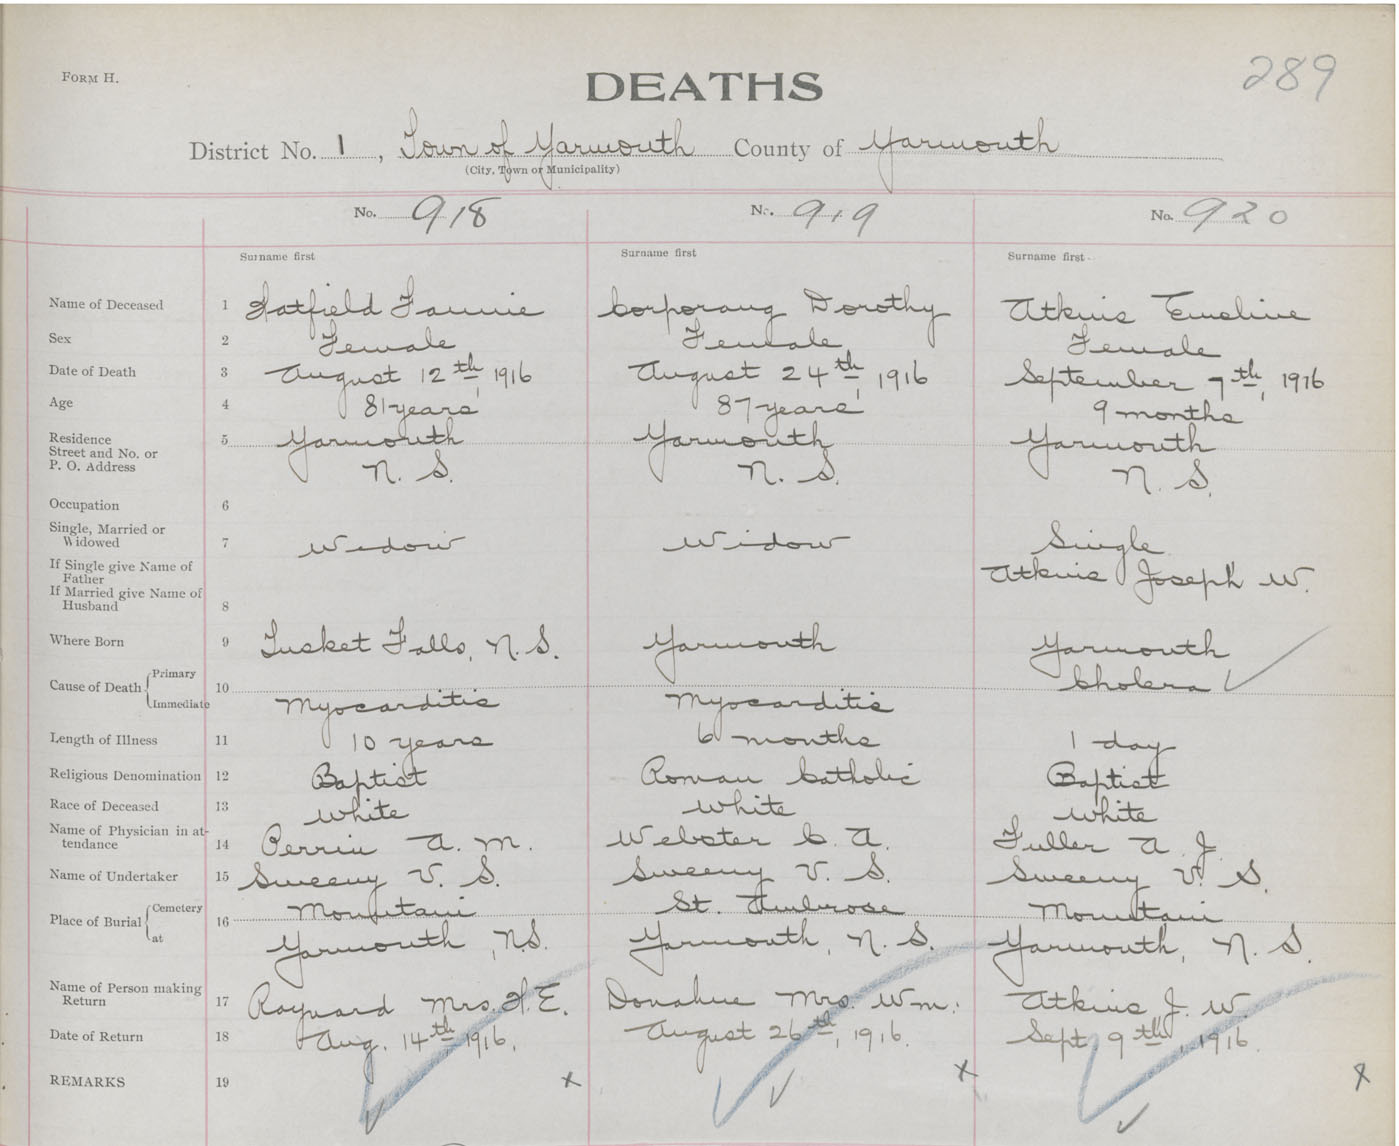 FORM H.
DEATHS
289
District No. 1, Town of Yarmouth County of Yarmouth
(City, Town or Municipality)
No. 918 No. 919 No. 920
Surname first Surname first Surname first
Name of Deceased 1 Hatfield Fannie Corporang Dorothy Atkins Emeline
Sex 2 Female Female Female
Date of Death 3 August 12th, 1916 August 24th, 1916 September 7th, 1916
Age 4 81 years 87 years 9 months
Residence 5 Yarmouth Yarmouth Yarmouth
Street and No. or
P. O. Address N. S. N. S. N. S.
Occupation 6
Single, Married or
Widowed 7 Widow Widow Single
If Single give Name of
Father Atkins Joseph W.
If Married give Name of
Husband 8
Where Born 9 Tusket Falls, N. S. Yarmouth Yarmouth
Cause of Death Primary 10 Cholera
Immediate Myocarditis Myocarditis
Length of Illness 11 10 years 6 months 1 day
Religious Denomination 12 Baptist Roman Catholic Baptist
Race of Deceased 13 White White White
Name of Physician in at-
tendance 14 Perrin A. M. Webster C. A. Fuller A. J.
Name of Undertaker 15 Sweeny V. S. Sweeny V. S. Sweeny V. S.
Place of Burial Cemetery 16 Mountain St. Ambrose Mountain
at Yarmouth, N.S. Yarmouth, N. S. Yarmouth, N. S.
Name of Person making
Return 17 Raynard Mrs. H. E. Donahue Mrs. Wm. Atkins J. W.
Date of Return 18 Aug. 14th 1916, August 26th, 1916. Sept. 9th, 1916.
REMARKS 19 x x x